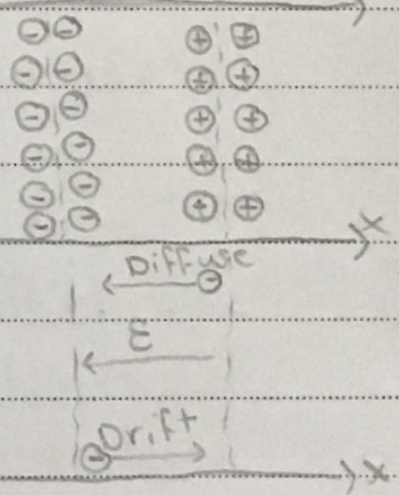 - -
+ +
- -
+ +
- -
+ +
- -
+ +
- -
+ +
- -
x
Diffuse
-
ε
Drift
-
x